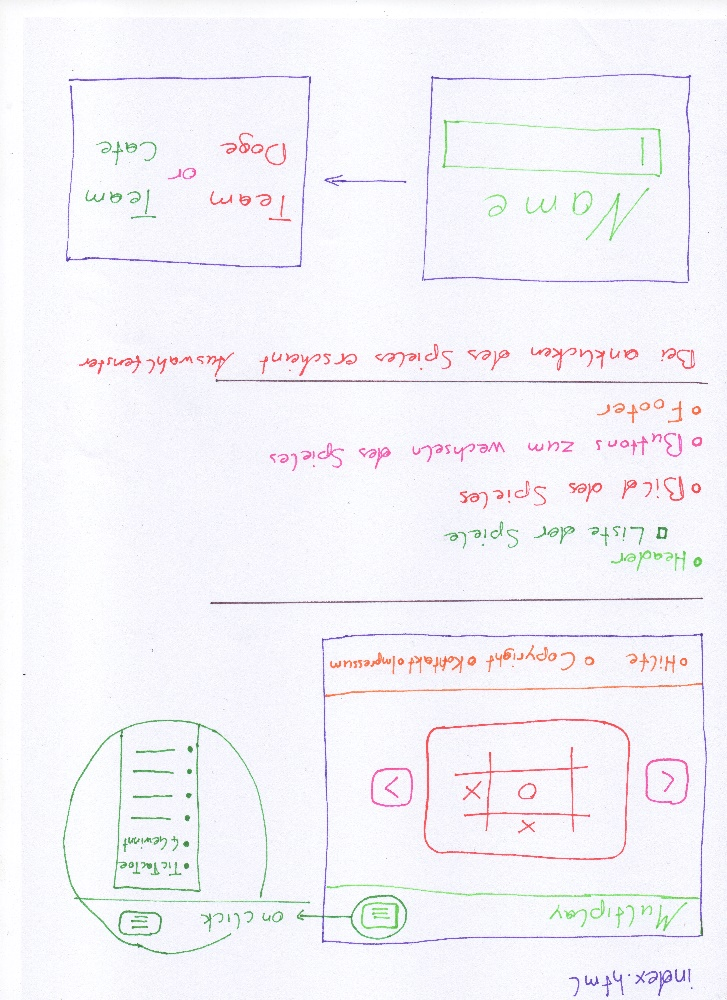 index.html
Multiplay
on click
• TicTacToe
• 4 Gewinnt
X
O X
<
>
o Hilfe o Copyright o Kontakt o Impressum
• Header
Liste der Spiele
• Bild des Spieles
• Buttons zum wechseln des Spieles
• Footer
Bei anklicken des Spieles erscheint Auswahlfenster
Name
Team
Doge
or
Team
Cate